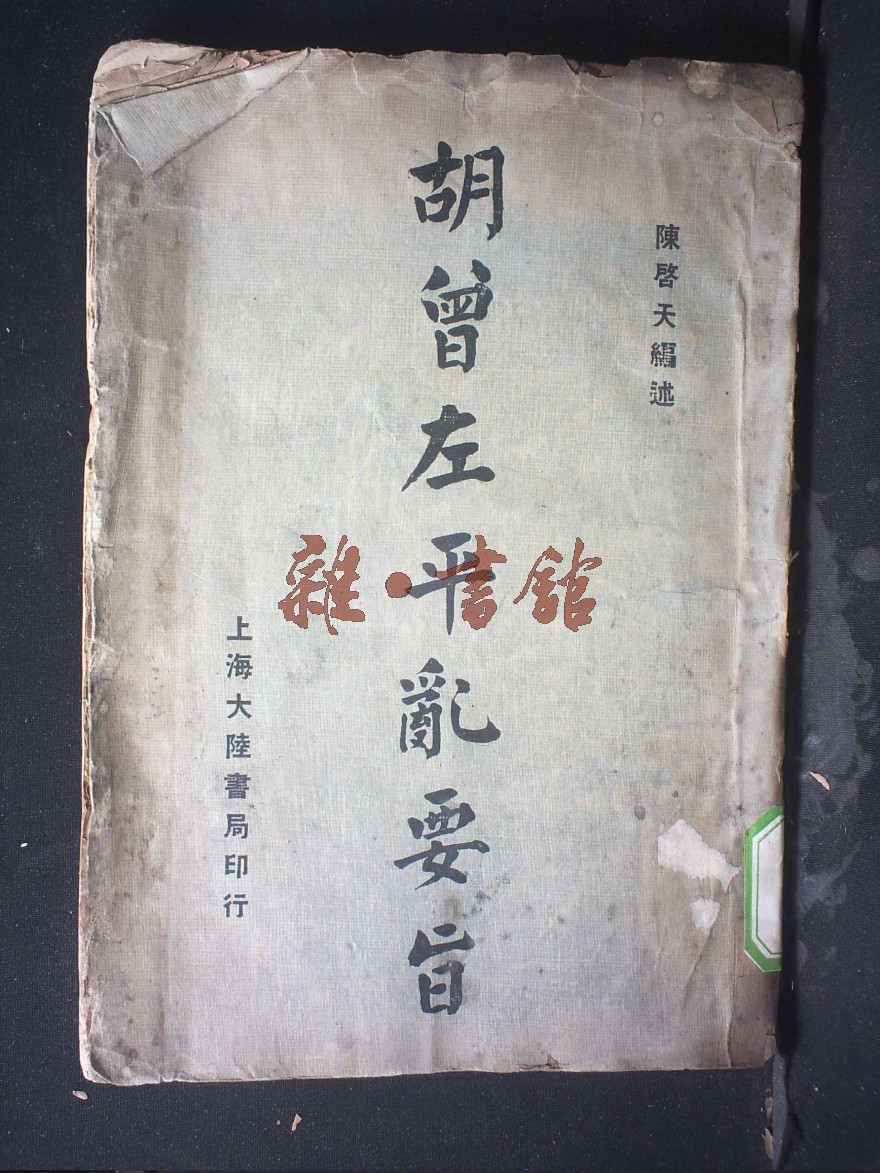 陳啓天編述
胡曾左平亂要旨
上海大陸書局印行
雜·書館